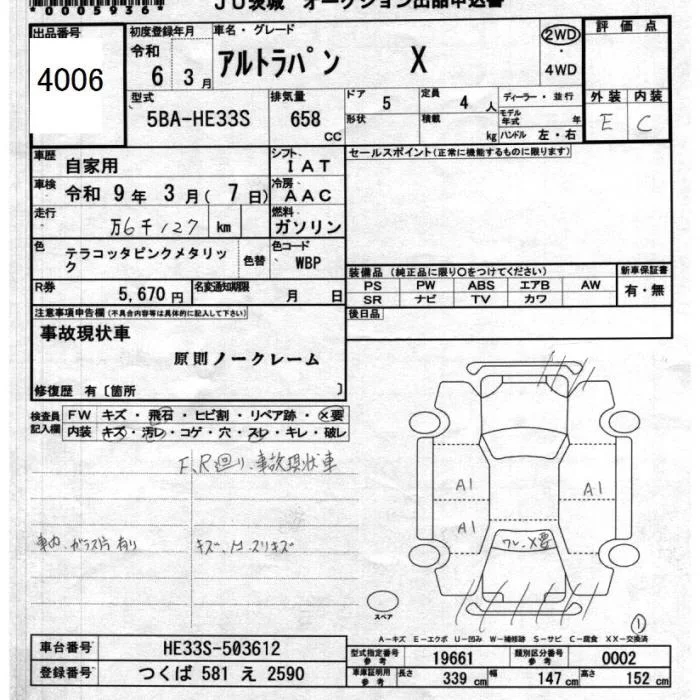 *0005936*
JU茨城 オークション出品申込書
出品番号 4006
初度登録年月 令和 6 3月
車名・グレード アルトラパン X
2WD・4WD
評価点
外装 E 内装 C
型式 5BA-HE33S
排気量 658 CC
ドア 5 定員 4 人
ディーラー・並行
形状 積載 kg
モデル年式 年
ハンドル 左・右
車歴 自家用
シフト IAT
セールスポイント(正常に機能するものに限ります)
車検 令和 9 年 3 月( 7 日)
冷房 AAC
走行 万6千127 km
燃料 ガソリン
色 テラコッタピンクメタリック
色替
色コード WBP
装備品(純正品に限り○をつけてください)
新車保証書 有・無
PS PW ABS エアB AW
SR ナビ TV カワ
R券 5,670 円
名変通知期限 月 日
後日品
注意事項申告欄(不具合内容等は具体的に記入して下さい)
事故現状車
原則ノークレーム
修復歴 有〔箇所 〕
検査員記入欄
FW キズ・飛石・ヒビ割・リペア跡・X要
内装 キズ・汚レ・コゲ・穴・スレ・キレ・破レ
F、R廻り、事故現状車
車内、ガラス片有り
キズ、凹、スリキズ
A1
A1
A1
ワレ、X要
スペア
①
A-キズ E-エクボ U-凹み W-補修跡 S-サビ C-腐食 XX-交換済
車台番号 HE33S-503612
登録番号 つくば 581 え 2590
型式指定番号 参考 19661
類別区分番号 参考 0002
車庫証明用 参考 長さ 339 cm 幅 147 cm 高さ 152 cm